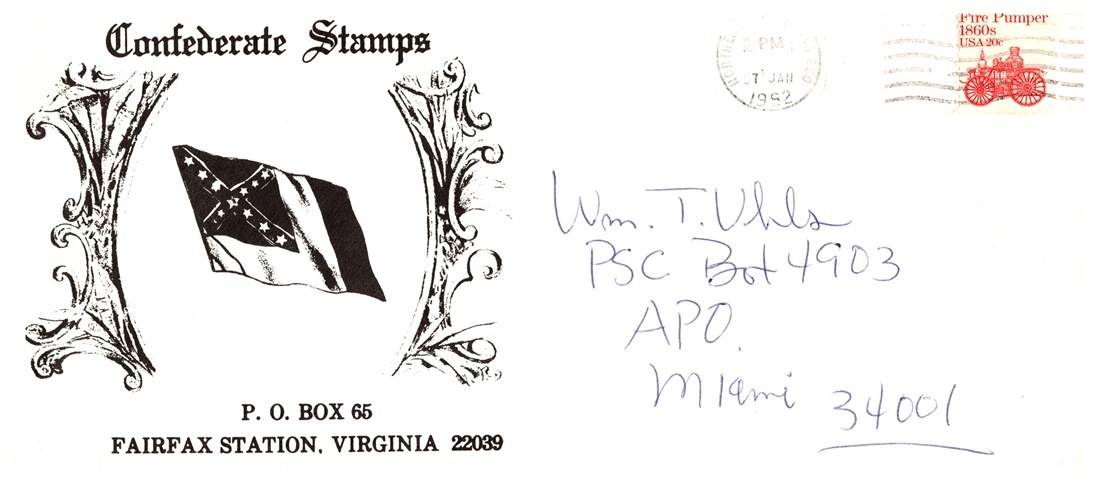 Confederate Stamps
P. O. BOX 65
FAIRFAX STATION, VIRGINIA 22039
PM
7 JAN
1982
Fire Pumper
1860s
USA 20c
Wm. T. Uhls
PSC Box 4903
APO.
Miami 34001